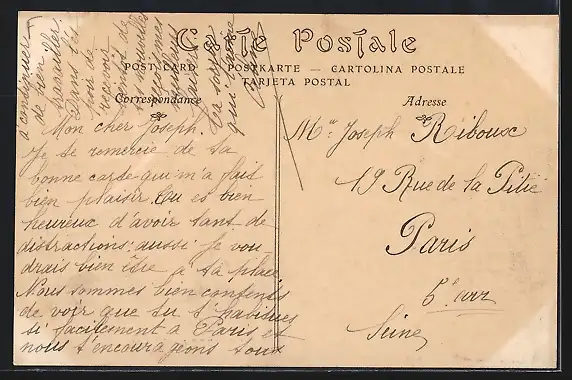 Carte Postale
POST CARD — POSTKARTE — CARTOLINA POSTALE
TARJETA POSTAL
Correspondance
Adresse
Mon cher Joseph.
Je te remercie de ta
bonne carte qui m'a fait
bien plaisir. Tu es bien
heureux d'avoir tant de
distractions: aussi je vou
drais bien être à ta place
Nous sommes bien contents
de voir que tu t'habitues
si facilement à Paris et
nous t'encourageons tous
à continuer
de bien
travailler.
Dans l'es
poir de
recevoir
de
nouvelles
Ta sœur
qui t'aime
Mr Joseph Riboux
19 Rue de la Pitié
Paris
5e arr
Seine